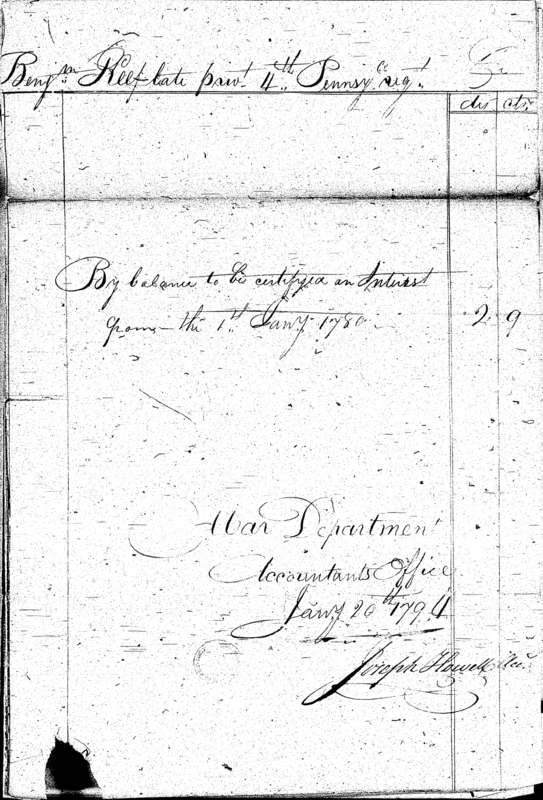 Benjn Keef late privt 4th Pennsya regt. Cr
dls cts
By balance to be certified on Interest
from the 1st Jany 1780 2 9
War Department
Accountants Office
Jany 20th 1794
Joseph Howell Acct.